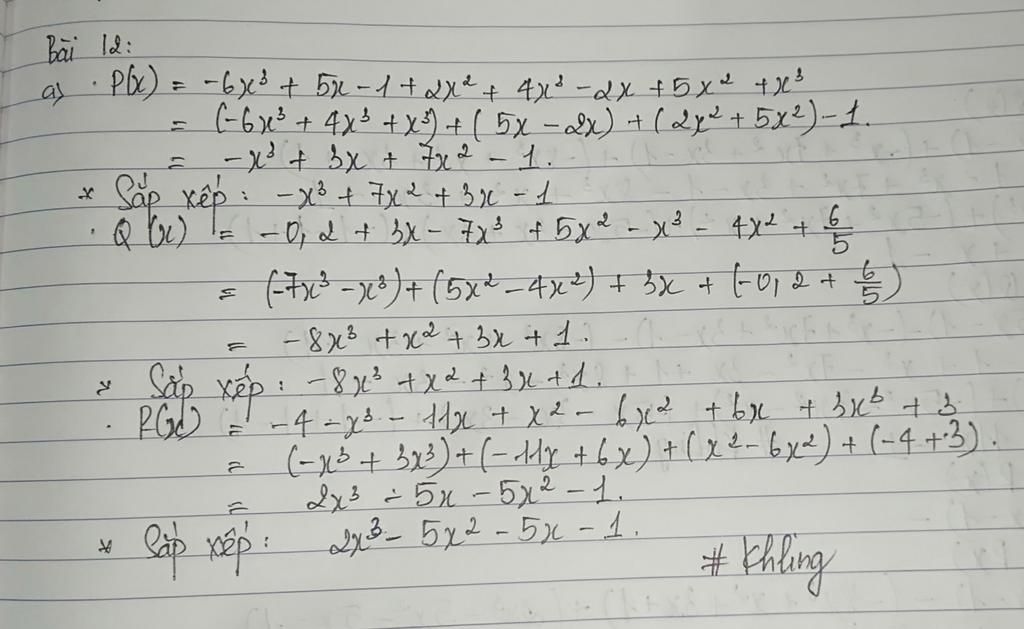 Bài 12:
a) · P(x) = -6x³ + 5x - 1 + 2x² + 4x³ - 2x + 5x² + x³
= (-6x³ + 4x³ + x³) + (5x - 2x) + (2x² + 5x²) - 1.
= -x³ + 3x + 7x² - 1.
* Sắp xếp: -x³ + 7x² + 3x - 1
· Q(x) = -0,2 + 3x - 7x³ + 5x² - x³ - 4x² + 6/5
= (-7x³ - x³) + (5x² - 4x²) + 3x + (-0,2 + 6/5)
= -8x³ + x² + 3x + 1.
* Sắp xếp: -8x³ + x² + 3x + 1.
· R(x) = -4 - x³ - 11x + x² - 6x² + 6x + 3x³ + 3
= (-x³ + 3x³) + (-11x + 6x) + (x² - 6x²) + (-4 + 3).
= 2x³ - 5x - 5x² - 1.
* Sắp xếp: 2x³ - 5x² - 5x - 1.
# Khling